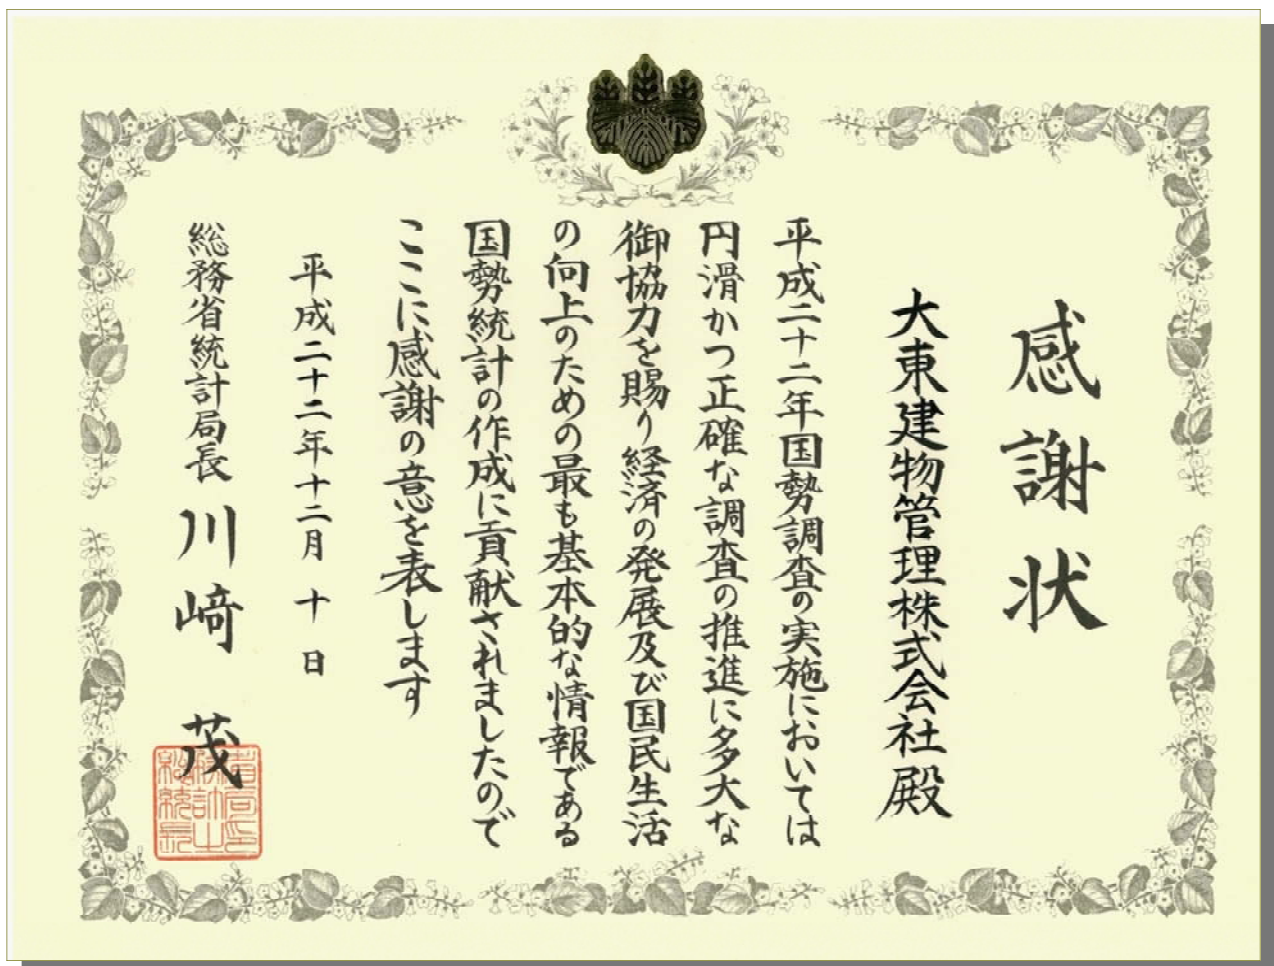 感謝状
大東建物管理株式会社殿
平成二十二年国勢調査の実施においては
円滑かつ正確な調査の推進に多大な
御協力を賜り経済の発展及び国民生活
の向上のための最も基本的な情報である
国勢統計の作成に貢献されましたので
ここに感謝の意を表します
平成二十二年十二月十日
総務省統計局長 川﨑 茂